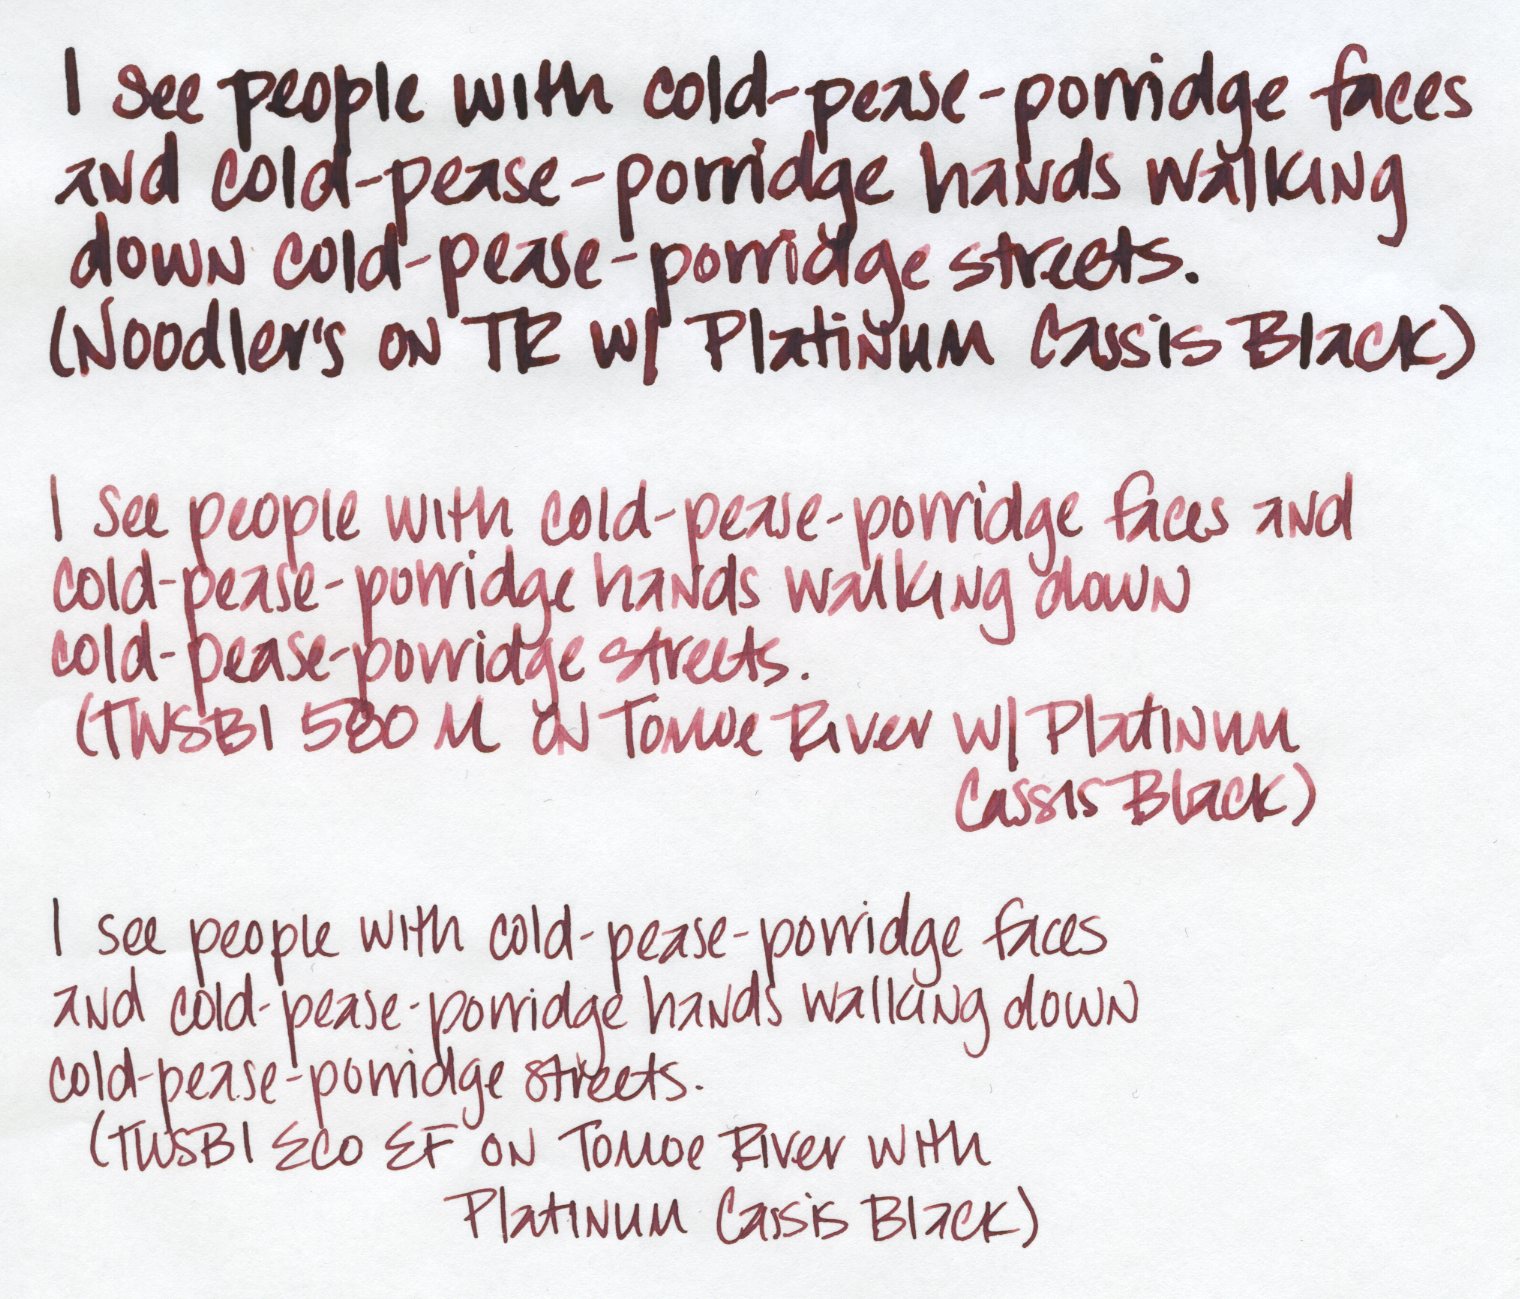 I see people with cold-pease-porridge faces
and cold-pease-porridge hands walking
down cold-pease-porridge streets.
(Noodler's on TR w/ Platinum Cassis Black)
I see people with cold-pease-porridge faces and
cold-pease-porridge hands walking down
cold-pease-porridge streets.
(TWSBI 580 M on Tomoe River w/ Platinum
Cassis Black)
I see people with cold-pease-porridge faces
and cold-pease-porridge hands walking down
cold-pease-porridge streets.
(TWSBI Eco EF on Tomoe River with
Platinum Cassis Black)